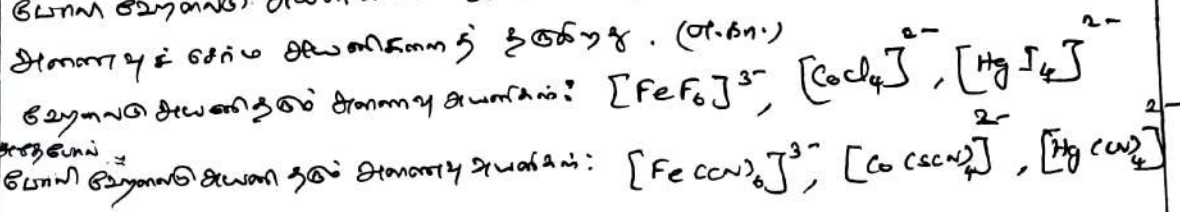 போலி ஹேலைடு
அணைவுச் சேர்ம அயனிகளைத் தருகிறது. (எ.கா.)
ஹேலைடு அயனி தரும் அணைவு அயனிகள்: [FeF6]3-, [CoCl4]2-, [HgI4]2-
அதேபோல்
போலி ஹேலைடு அயனி தரும் அணைவு அயனிகள்: [Fe(CN)6]3-, [Co(SCN)4]2-, [Hg(CN)4]2-